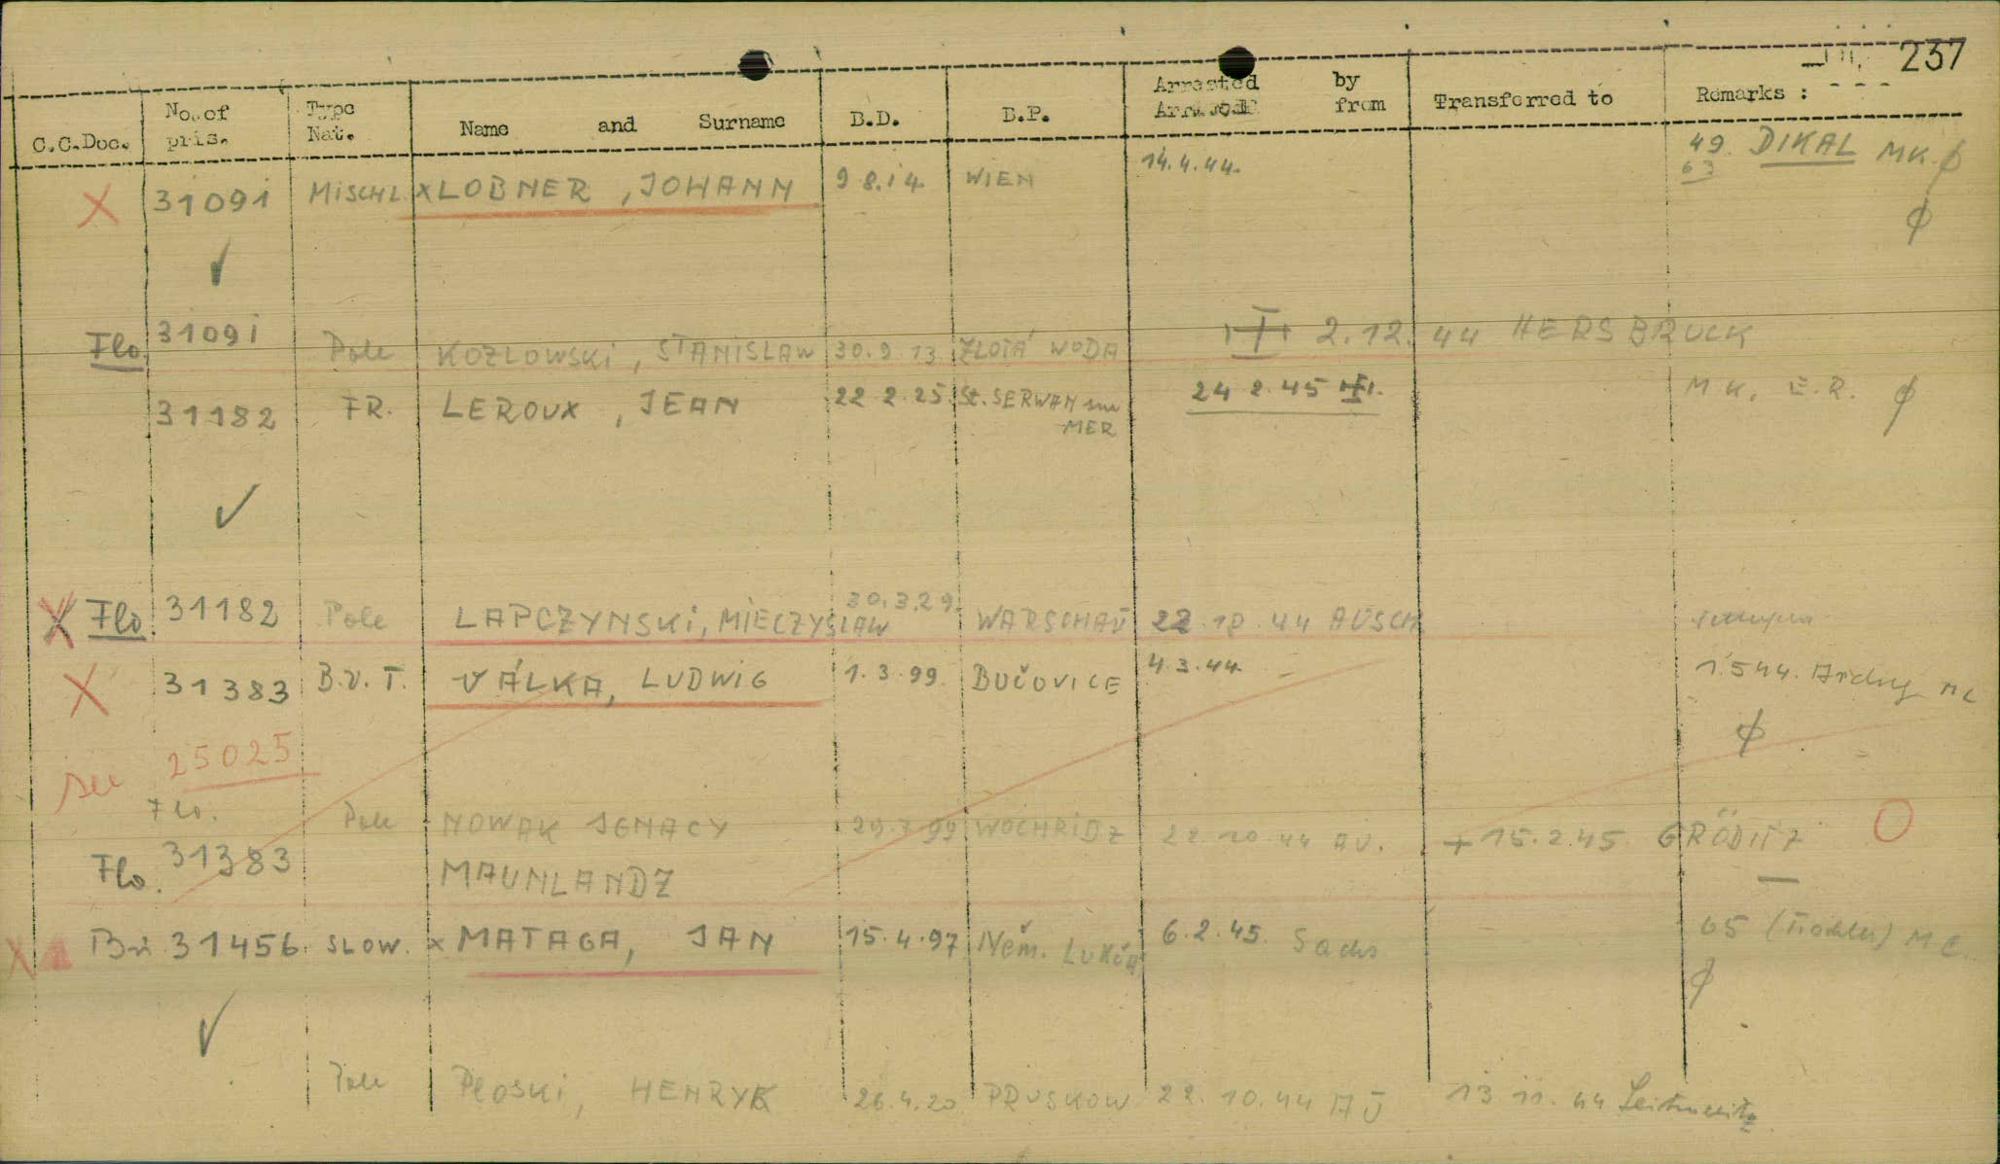 237
C.C.Doc. No. of pris. Type Nat. Name and Surname B.D. B.P. Arrested by from Transferred to Remarks :
49. DIKAL MK. ϕ
63
31091 MISCHL. x LOBNER , JOHANN 9 8.14. WIEN 14.4.44.
ϕ
✓
Flo. 31091 Pole KOZLOWSKI, STANISLAW 30.9.13. ZLOTÁ WODA 2.12.44 HERSBRUCK
31182 FR. LEROUX , JEAN 22.2.25. St. SERWAN sur MER 24 2.45 MK, E.R. ϕ
✓
X Flo. 31182 Pole LAPCZYNSKI, MIECZYSLAW 30.3.29. WARSCHAU 22.10.44 AUSCH
X 31383 B.V. T. VÁLKA, LUDWIG 1.3.99. BUČOVICE 4.3.44. 1.5 44.
ϕ
see 25025
Flo. Pole NOWAK IGNACY 29.7.99 WOCHRIDZ 22.10.44 AU. + 15.2.45. GRÖDITZ O
Flo. 31383 MAUNLANDZ
X Bü 31456. SLOW. x MATAGA, JAN 15.4.97 Něm. 6.2.45. Sachs 65
ϕ
✓
Pole PLOSKI, HENRYK 26.4.20 PRUSKOW 22.10.44 AU 13 11.44 Leitmeritz